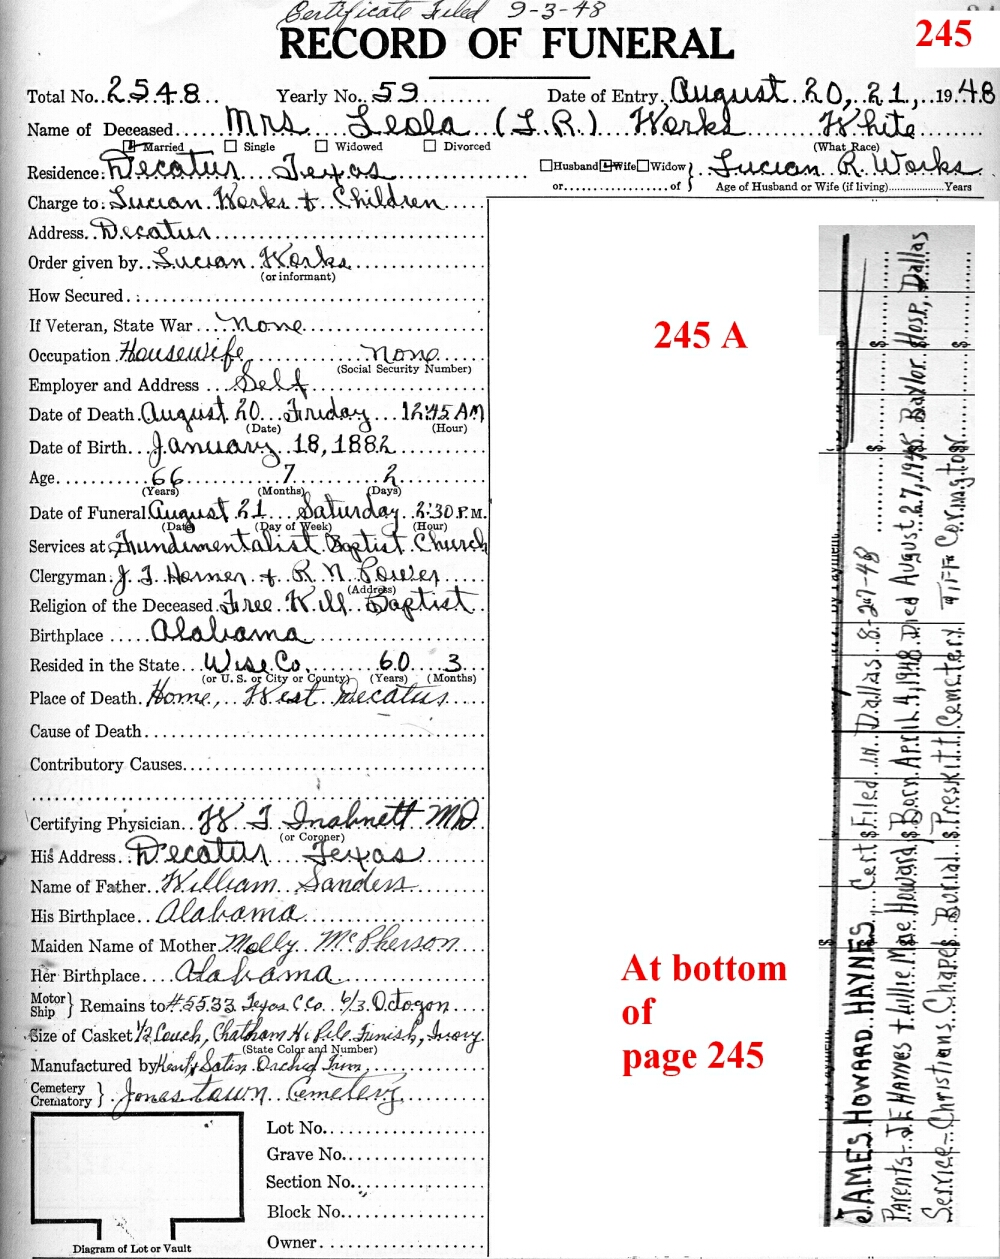 Certificate Filed 9-3-48
245
RECORD OF FUNERAL
Total No. 2548 Yearly No. 59 Date of Entry August 20, 21, 1948
Name of Deceased Mrs. Leola (L.R.) Works White
Married Single Widowed Divorced (What Race)
Residence: Decatur Texas Husband Wife Widow } Lucian R. Works
or of Age of Husband or Wife (if living) Years
Charge to: Lucian Works + Children
Address Decatur
Order given by Lucian Works
(or informant)
How Secured
If Veteran, State War None
Occupation Housewife None
(Social Security Number)
Employer and Address Self
Date of Death August 20 Friday 12:45 AM
(Date) (Hour)
Date of Birth January 18, 1882
Age 66 7 2
(Years) (Months) (Days)
Date of Funeral August 21 Saturday 2:30 P.M.
(Date) (Day of Week) (Hour)
Services at Fundimentalist Baptist Church
Clergyman J. T. Horner + R. N. Power
(Address)
Religion of the Deceased Free Will Baptist
Birthplace Alabama
Resided in the State Wise Co. 60 3
(or U. S. or City or County) (Years) (Months)
Place of Death Home, West Decatur
Cause of Death
Contributory Causes
Certifying Physician W T Inabnett MD
(or Coroner)
His Address Decatur Texas
Name of Father William Sanders
His Birthplace Alabama
Maiden Name of Mother Molly McPherson
Her Birthplace Alabama
Motor
Ship } Remains to #5533 Texas C Co. 6/3 Octogon
Size of Casket 1/2 Couch, Chatham Hi Pile Finish, Ivory
(State Color and Number)
Manufactured by Satin Orchid Trim
Cemetery
Crematory } Jonestown Cemetery
Lot No.
Grave No.
Section No.
Block No.
Owner
Diagram of Lot or Vault
245 A
At bottom
of
page 245
JAMES HOWARD HAYNES Cert Filed in Dallas 8-27-48
Parents- JE Haynes + Willie Mae Howard Born April 4, 1948 Died August 27, 1948 Baylor Hosp, Dallas
Service- Christians Chapel Burial Preskitt Cemetery Covington